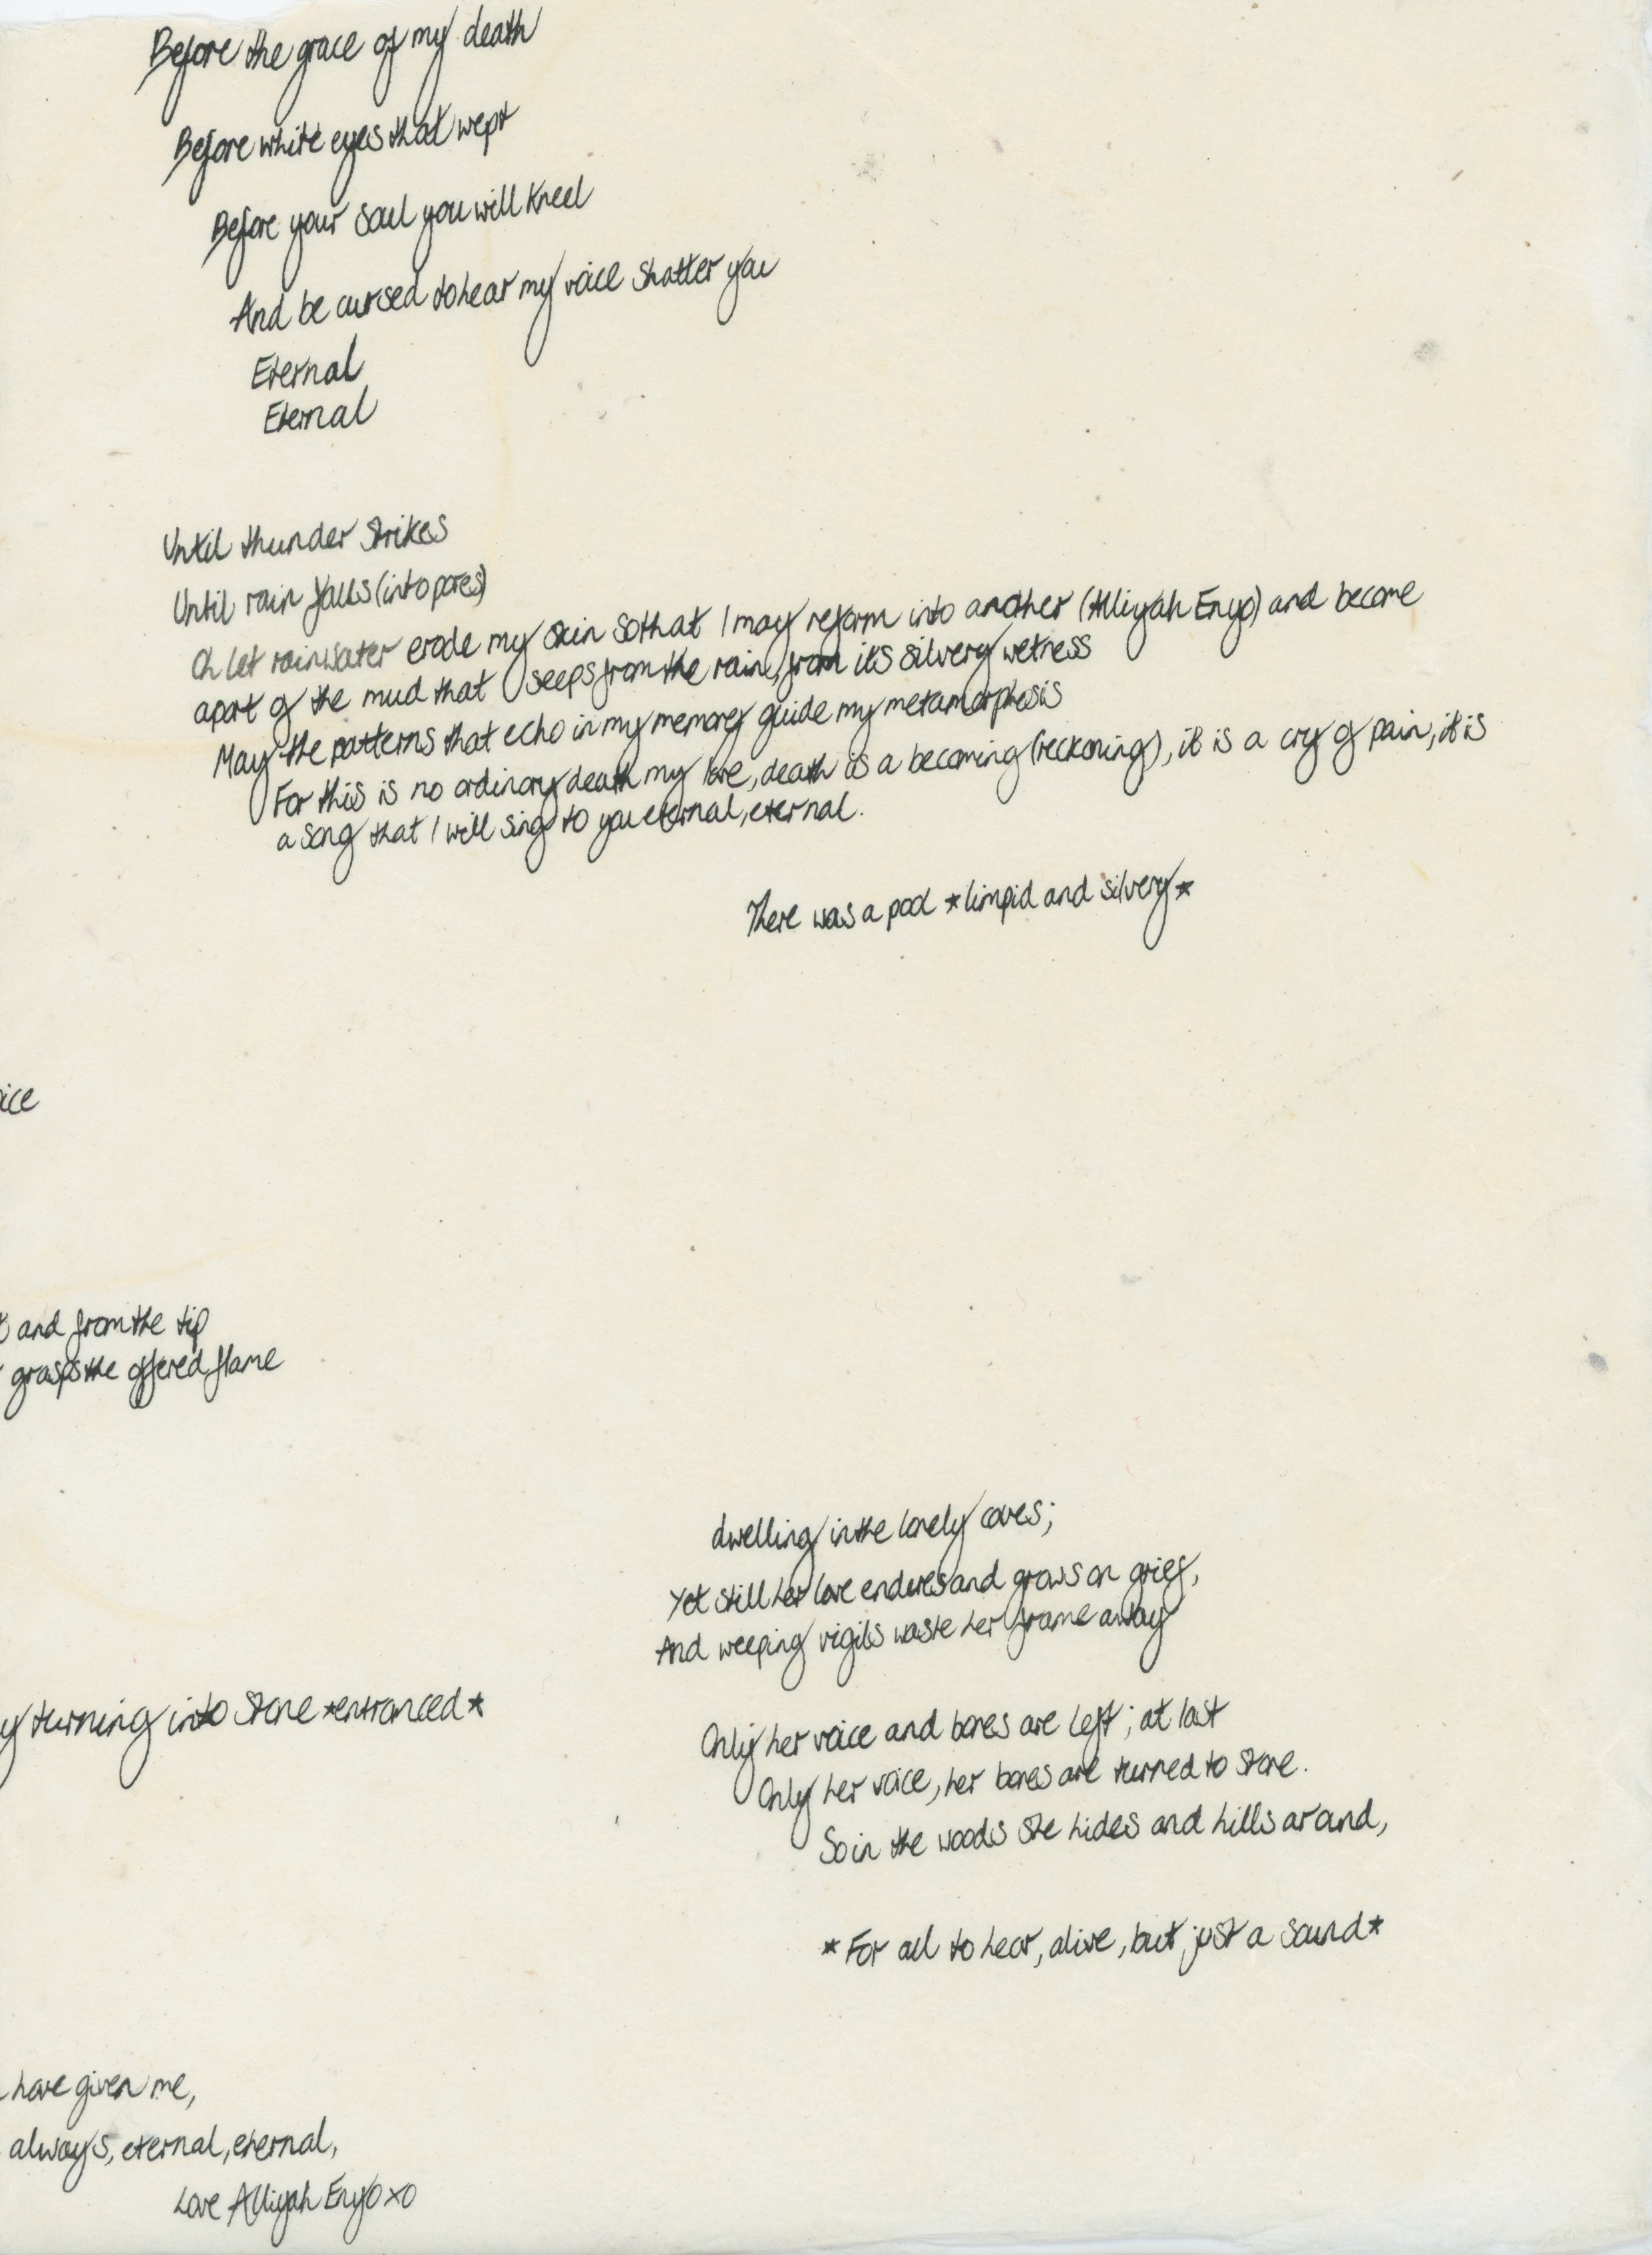 Before the grace of my death
Before white eyes that wept
Before your soul you will kneel
And be cursed to hear my voice shatter you
Eternal
Eternal
Until thunder strikes
Until rain falls (into pores)
Oh let rainwater erode my skin so that I may reform into another (Alliyah Enyo) and become
apart of the mud that seeps from the rain, from its silvery wetness
May the patterns that echo in my memory guide my metamorphosis
For this is no ordinary death my love, death is a becoming (reckoning), it is a cry of pain, it is
a song that I will sing to you eternal, eternal.
There was a pool *limpid and silvery*
oice
and from the tip
grasps the offered flame
dwelling in the lonely caves;
Yet still her love endures and grows on grief,
And weeping vigils waste her frame away
y turning into stone *entranced*
Only her voice and bones are left; at last
Only her voice, her bones are turned to stone.
So in the woods she hides and hills around,
*For all to hear, alive, but just a sound*
have given me,
always, eternal, eternal,
Love Alliyah Enyo xo